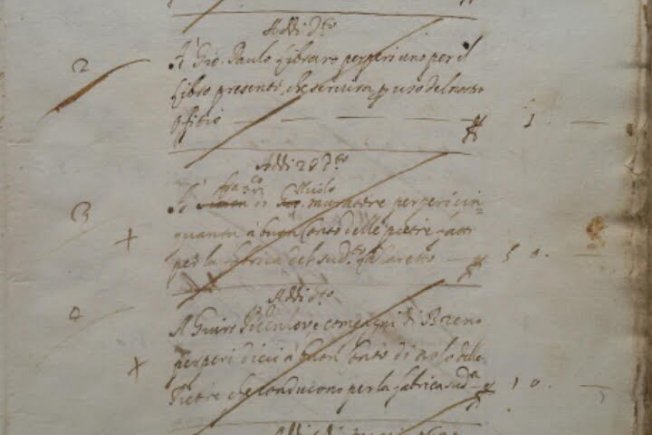 Addi d.to
2 A Gio. Paulo libraro perperi uno per il
libro presente, che servira p uso del nostro
offitio 1 : —
Addi 28 d.to
3 A muratore perperi cin=
quanta à buon conto delle pietre
per la fabrica del sud.to Lazaretto 50 : —
Addi d.to
4 A e compagni di Breno
perperi dieci à buon conto di nolo delle
Pietre che conducono per la fabrica sud.a 10 : —
Addi